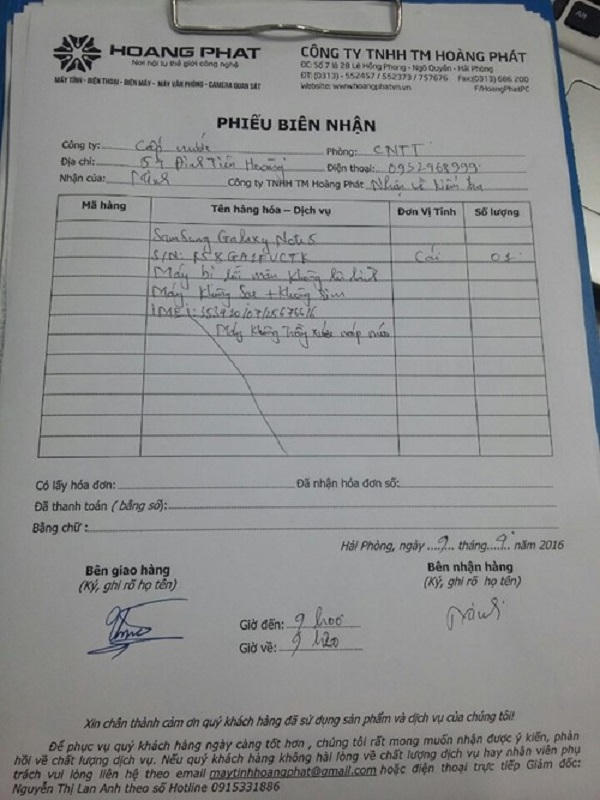 HOANG PHAT
Nơi hội tụ thế giới công nghệ
MÁY TÍNH - ĐIỆN THOẠI - ĐIỆN MÁY - MÁY VĂN PHÒNG - CAMERA QUAN SÁT
CÔNG TY TNHH TM HOÀNG PHÁT
ĐC: Số 7 lô 28 Lê Hồng Phong - Ngô Quyền - Hải Phòng
ĐT: (0313) - 552457 / 552373 / 757676 Fax:(0313) 686 200
Website: www.hoangphatvn.vn F/HoangPhatPC
PHIẾU BIÊN NHẬN
Công ty: Cấp nước Phòng: CNTT
Địa chỉ: 54 Đinh Tiên Hoàng Điện thoại: 0952968999
Nhận của: Công ty TNHH TM Hoàng Phát Nhận về kiểm tra
Mã hàng Tên hàng hóa – Dịch vụ Đơn Vị Tính Số lượng
SamSung Galaxy Note 5
S/N: Cái 01
Máy bị lỗi màn không lên hình
Máy không Sạc + không Sim
IMEI:
Máy không trầy xước móp méo
Có lấy hóa đơn: Đã nhận hóa đơn số:
Đã thanh toán ( bằng số):
Bằng chữ :
Hải Phòng, ngày 9 tháng 9 năm 2016
Bên giao hàng Bên nhận hàng
(Ký, ghi rõ họ tên) (Ký, ghi rõ họ tên)
Giờ đến: 9 h00
Giờ về: 9 h20
Xin chân thành cảm ơn quý khách hàng đã sử dụng sản phẩm và dịch vụ của chúng tôi!
Để phục vụ quý khách hàng ngày càng tốt hơn , chúng tôi rất mong muốn nhận được ý kiến, phản
hồi về chất lượng dịch vụ. Nếu quý khách hàng không hài lòng về chất lượng dịch vụ hay nhân viên phụ
trách vui lòng liên hệ theo email maytinhhoangphat@gmail.com hoặc điện thoại trực tiếp Giám đốc:
Nguyễn Thị Lan Anh theo số Hotline 0915331886